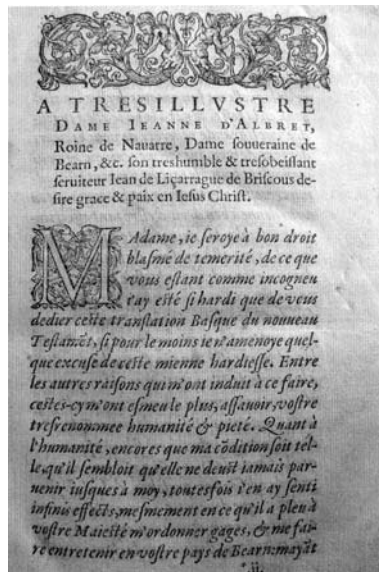 A TRESILLVSTRE
DAME IEANNE D'ALBRET,
Roine de Nauarre, Dame souueraine de
Bearn, &c. son treshumble & tresobeissant
seruiteur Iean de Liçarrague de Briscous de-
sire grace & paix en Iesus Christ.
MAdame, ie seroye à bon droit
blasmé de temerité, de ce que
vous estant comme incogneu
i'ay esté si hardi que de vous
dedier ceste translation Basque du nouueau
Testamẽt, si pour le moins ie n'amenoye quel-
que excuse de ceste mienne hardiesse. Entre
les autres raisons qui m'ont induit à ce faire,
cestes-cy m'ont esmeu le plus, assauoir, vostre
tresrenommee humanité & pieté. Quant à
l'humanité, encores que ma cõdition soit tel-
le, qu'il sembloit qu'elle ne deust iamais par-
uenir iusques à moy, toutesfois i'en ay senti
infinis effects, mesmement en ce qu'il a pleu à
vostre Maiesté m'ordonner gages, & me fai-
re entretenir en vostre pays de Bearn: mayãt
*.ii.